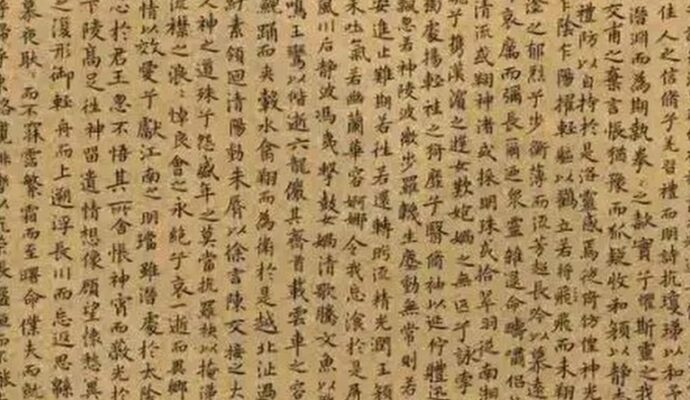 佳人之信脩兮羌習禮而明詩抗瓊珶以和予
潛淵而為期執拳々之款實兮懼斯靈之我
交甫之棄言悵猶豫而狐疑收和顏以靜
禮防以自持於是洛靈感焉徙倚彷徨神光
乍陰乍陽擢輕軀以鶴立若將飛而未翔
塗之郁烈兮步衡薄而流芳超長吟以慕遠
哀厲而彌長爾迺眾靈雜遝命疇嘯侶
清流或翔神渚或採明珠或拾翠羽從南湘
妃兮攜漢濱之遊女歎匏媧之無匹兮詠牽
獨處揚輕袿之猗靡兮翳脩袖以延佇體迅
飄忽若神陵波微步羅韈生塵動無常則若
安進止難期若往若還轉眄流精光潤玉顏
未吐氣若幽蘭華容婀娜令我忘飡於是屏
風川后靜波馮夷擊鼓女媧清歌騰文魚以
鳴玉鸞以偕逝六龍儼其齊首載雲車之容
鯢踊而夾轂水禽翔而為衛於是越北沚過
紆素領迴清陽動朱脣以徐言陳交接之大
人神之道殊兮怨盛年之莫當抗羅袂以掩涕
流襟之浪々悼良會之永絕兮哀一逝而異鄉
情以效愛兮獻江南之明璫雖潛處於太陰
心於君王忽不悟其所舍悵神宵而蔽光於
下陵高足往神留遺情想像顧望懷愁冀
之復形御輕舟而上遡浮長川而忘返思緜
慕夜耿々而不寐霑繁霜而至曙命僕夫而就